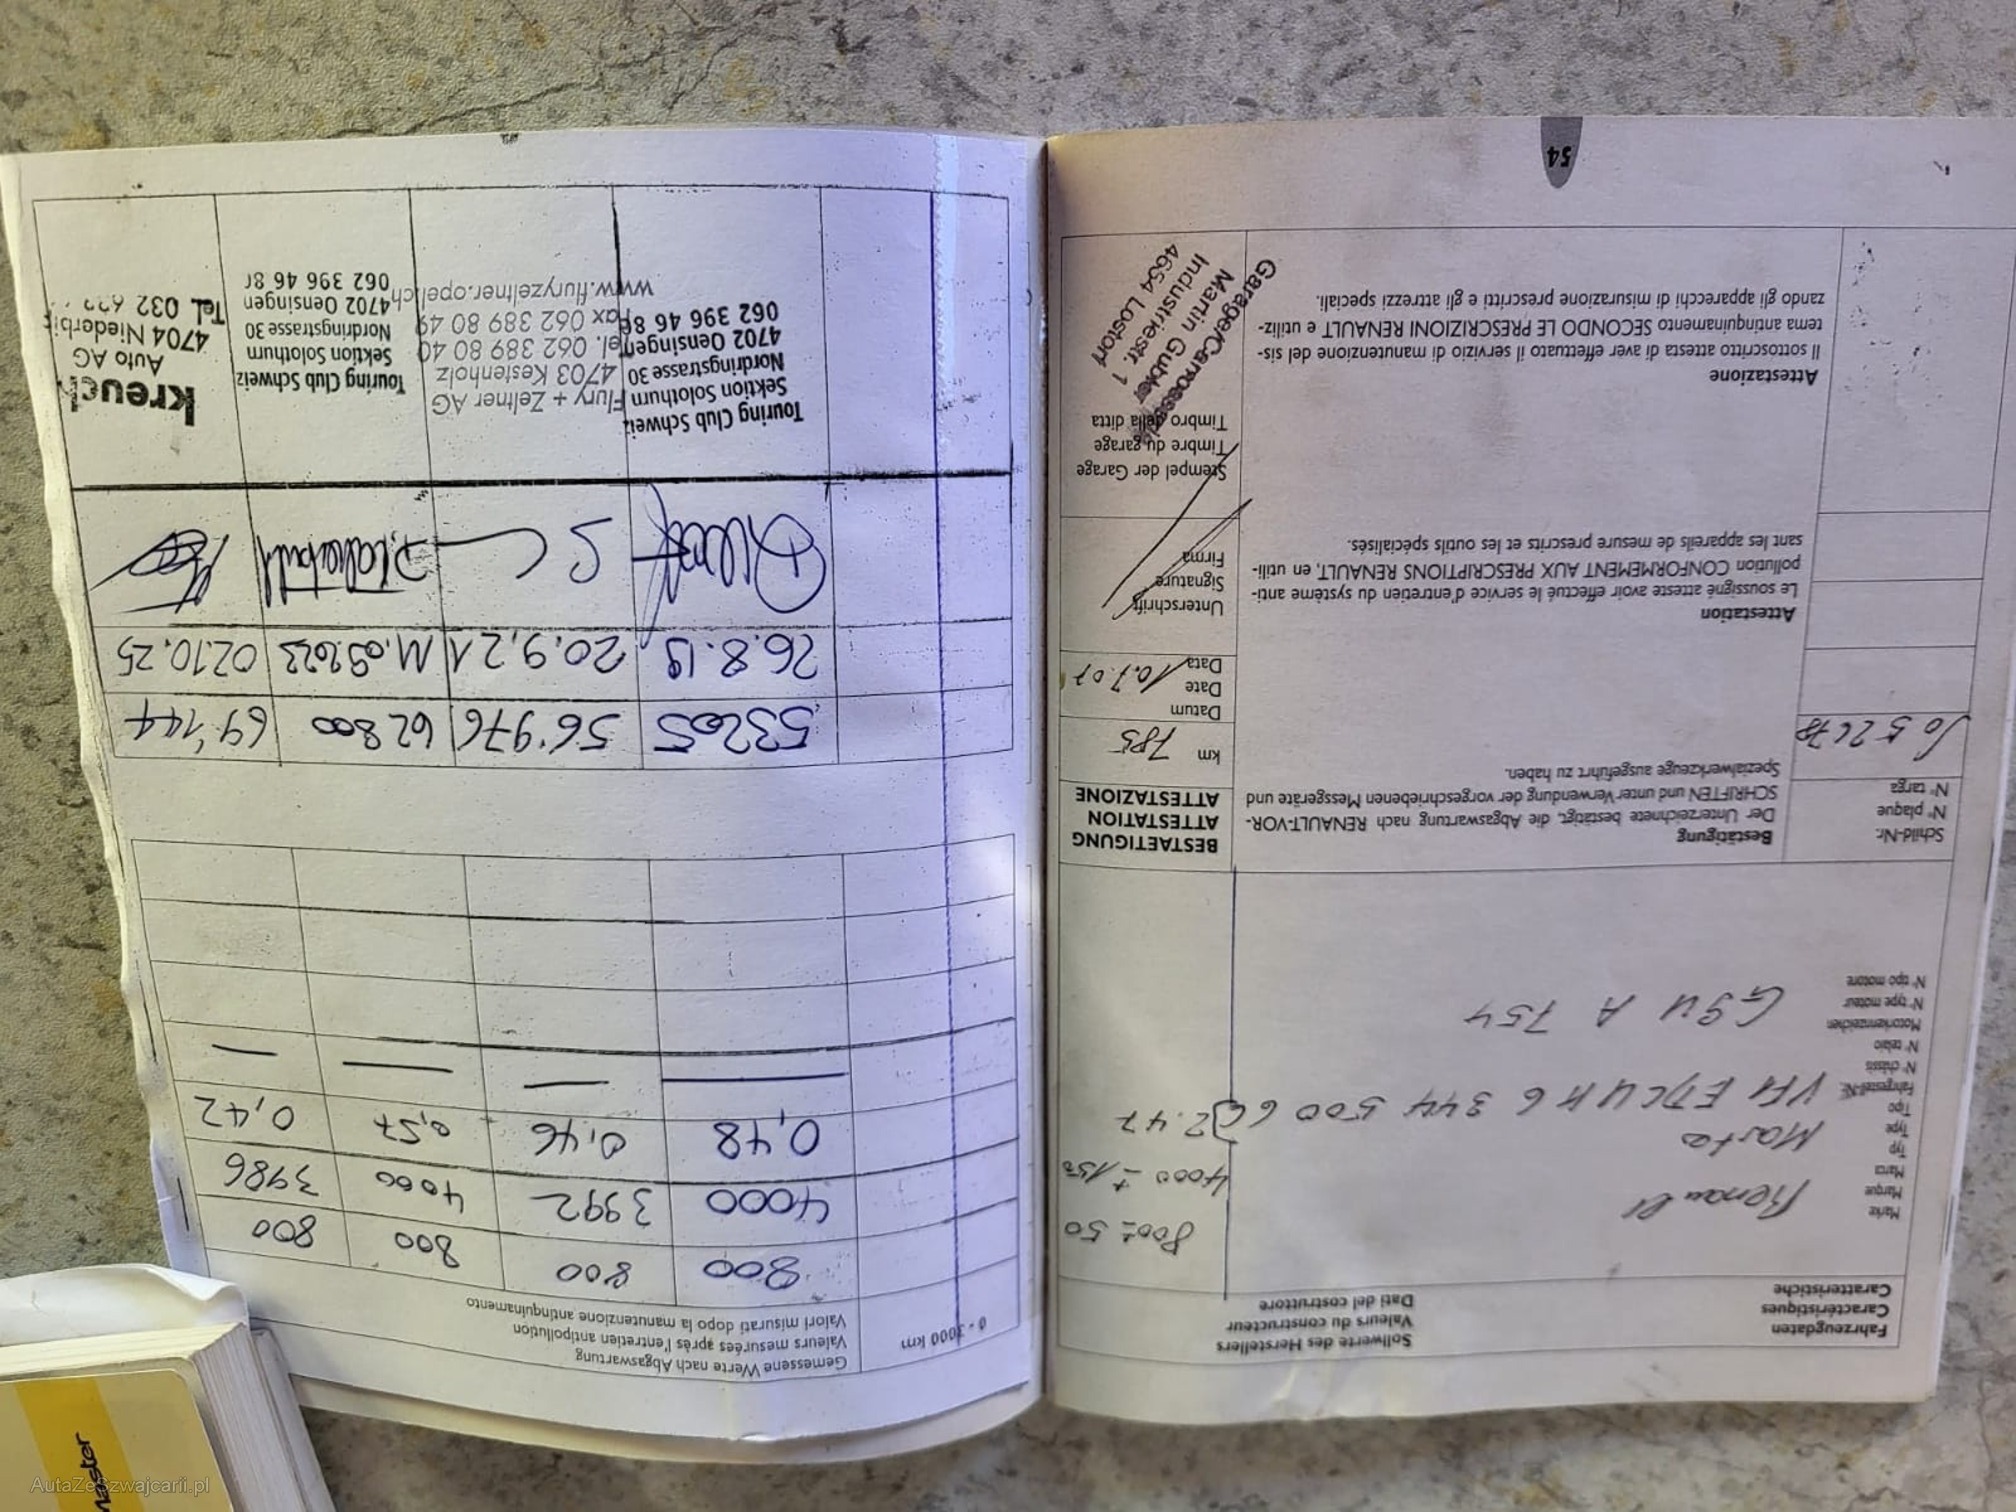 Fahrzeugdaten
Caractéristiques
Caratteristiche
Sollwerte des Herstellers
Valeurs du constructeur
Dati del costruttore
Marke
Marque
Marca
Renault
800± 50
Typ
Type
Tipo
Master
4000 ± 150
Fahrgestell-Nr.
N° châssis
N° telaio
2.47
Motorkennzeichen
N° type moteur
N° tipo motore
G9U A 754
Schild-Nr.
N° plaque
N° targa
So 52678
Bestätigung
Der Unterzeichnete bestätigt, die Abgaswartung nach RENAULT-VOR-
SCHRIFTEN und unter Verwendung der vorgeschriebenen Messgeräte und
Spezialwerkzeuge ausgeführt zu haben.
Attestation
Le soussigné atteste avoir effectué le service d'entretien du système anti-
pollution CONFORMEMENT AUX PRESCRIPTIONS RENAULT, en utili-
sant les appareils de mesure prescrits et les outils spécialisés.
Attestazione
Il sottoscritto attesta di aver effettuato il servizio di manutenzione del sis-
tema antinquinamento SECONDO LE PRESCRIZIONI RENAULT e utiliz-
zando gli apparecchi di misurazione prescritti e gli attrezzi speciali.
BESTAETIGUNG
ATTESTATION
ATTESTAZIONE
km
785
Datum
Date
Data
10.7.07
Unterschrift
Signature
Firma
Stempel der Garage
Timbre du garage
Timbro della ditta
Garage/Carrosserie
Martin Gubler
Industriestr. 1
4654 Lostorf
54
0 - 3000 km
Gemessene Werte nach Abgaswartung
Valeurs mesurées après l'entretien antipollution
Valori misurati dopo la manutenzione antinquinamento
800 800 800 800
4000 3992 4000 3986
0,48 0,46 0,57 0,42
53205 56'976 62800 69'144
26.8.19 20.9.21 11.09.2023 02.10.25
Touring Club Schweiz
Sektion Solothurn
Nordringstrasse 30
4702 Oensingen
062 396 46 86
Flury + Zeltner AG
4703 Kestenholz
Tel. 062 389 80 40
Fax 062 389 80 49
www.fluryzeltner.opel.ch
Touring Club Schweiz
Sektion Solothurn
Nordringstrasse 30
4702 Oensingen
062 396 46 8
kreuch
Auto AG
4704 Niederbi
Tel. 032 6
Master
AutaZeSzwajcarii.pl